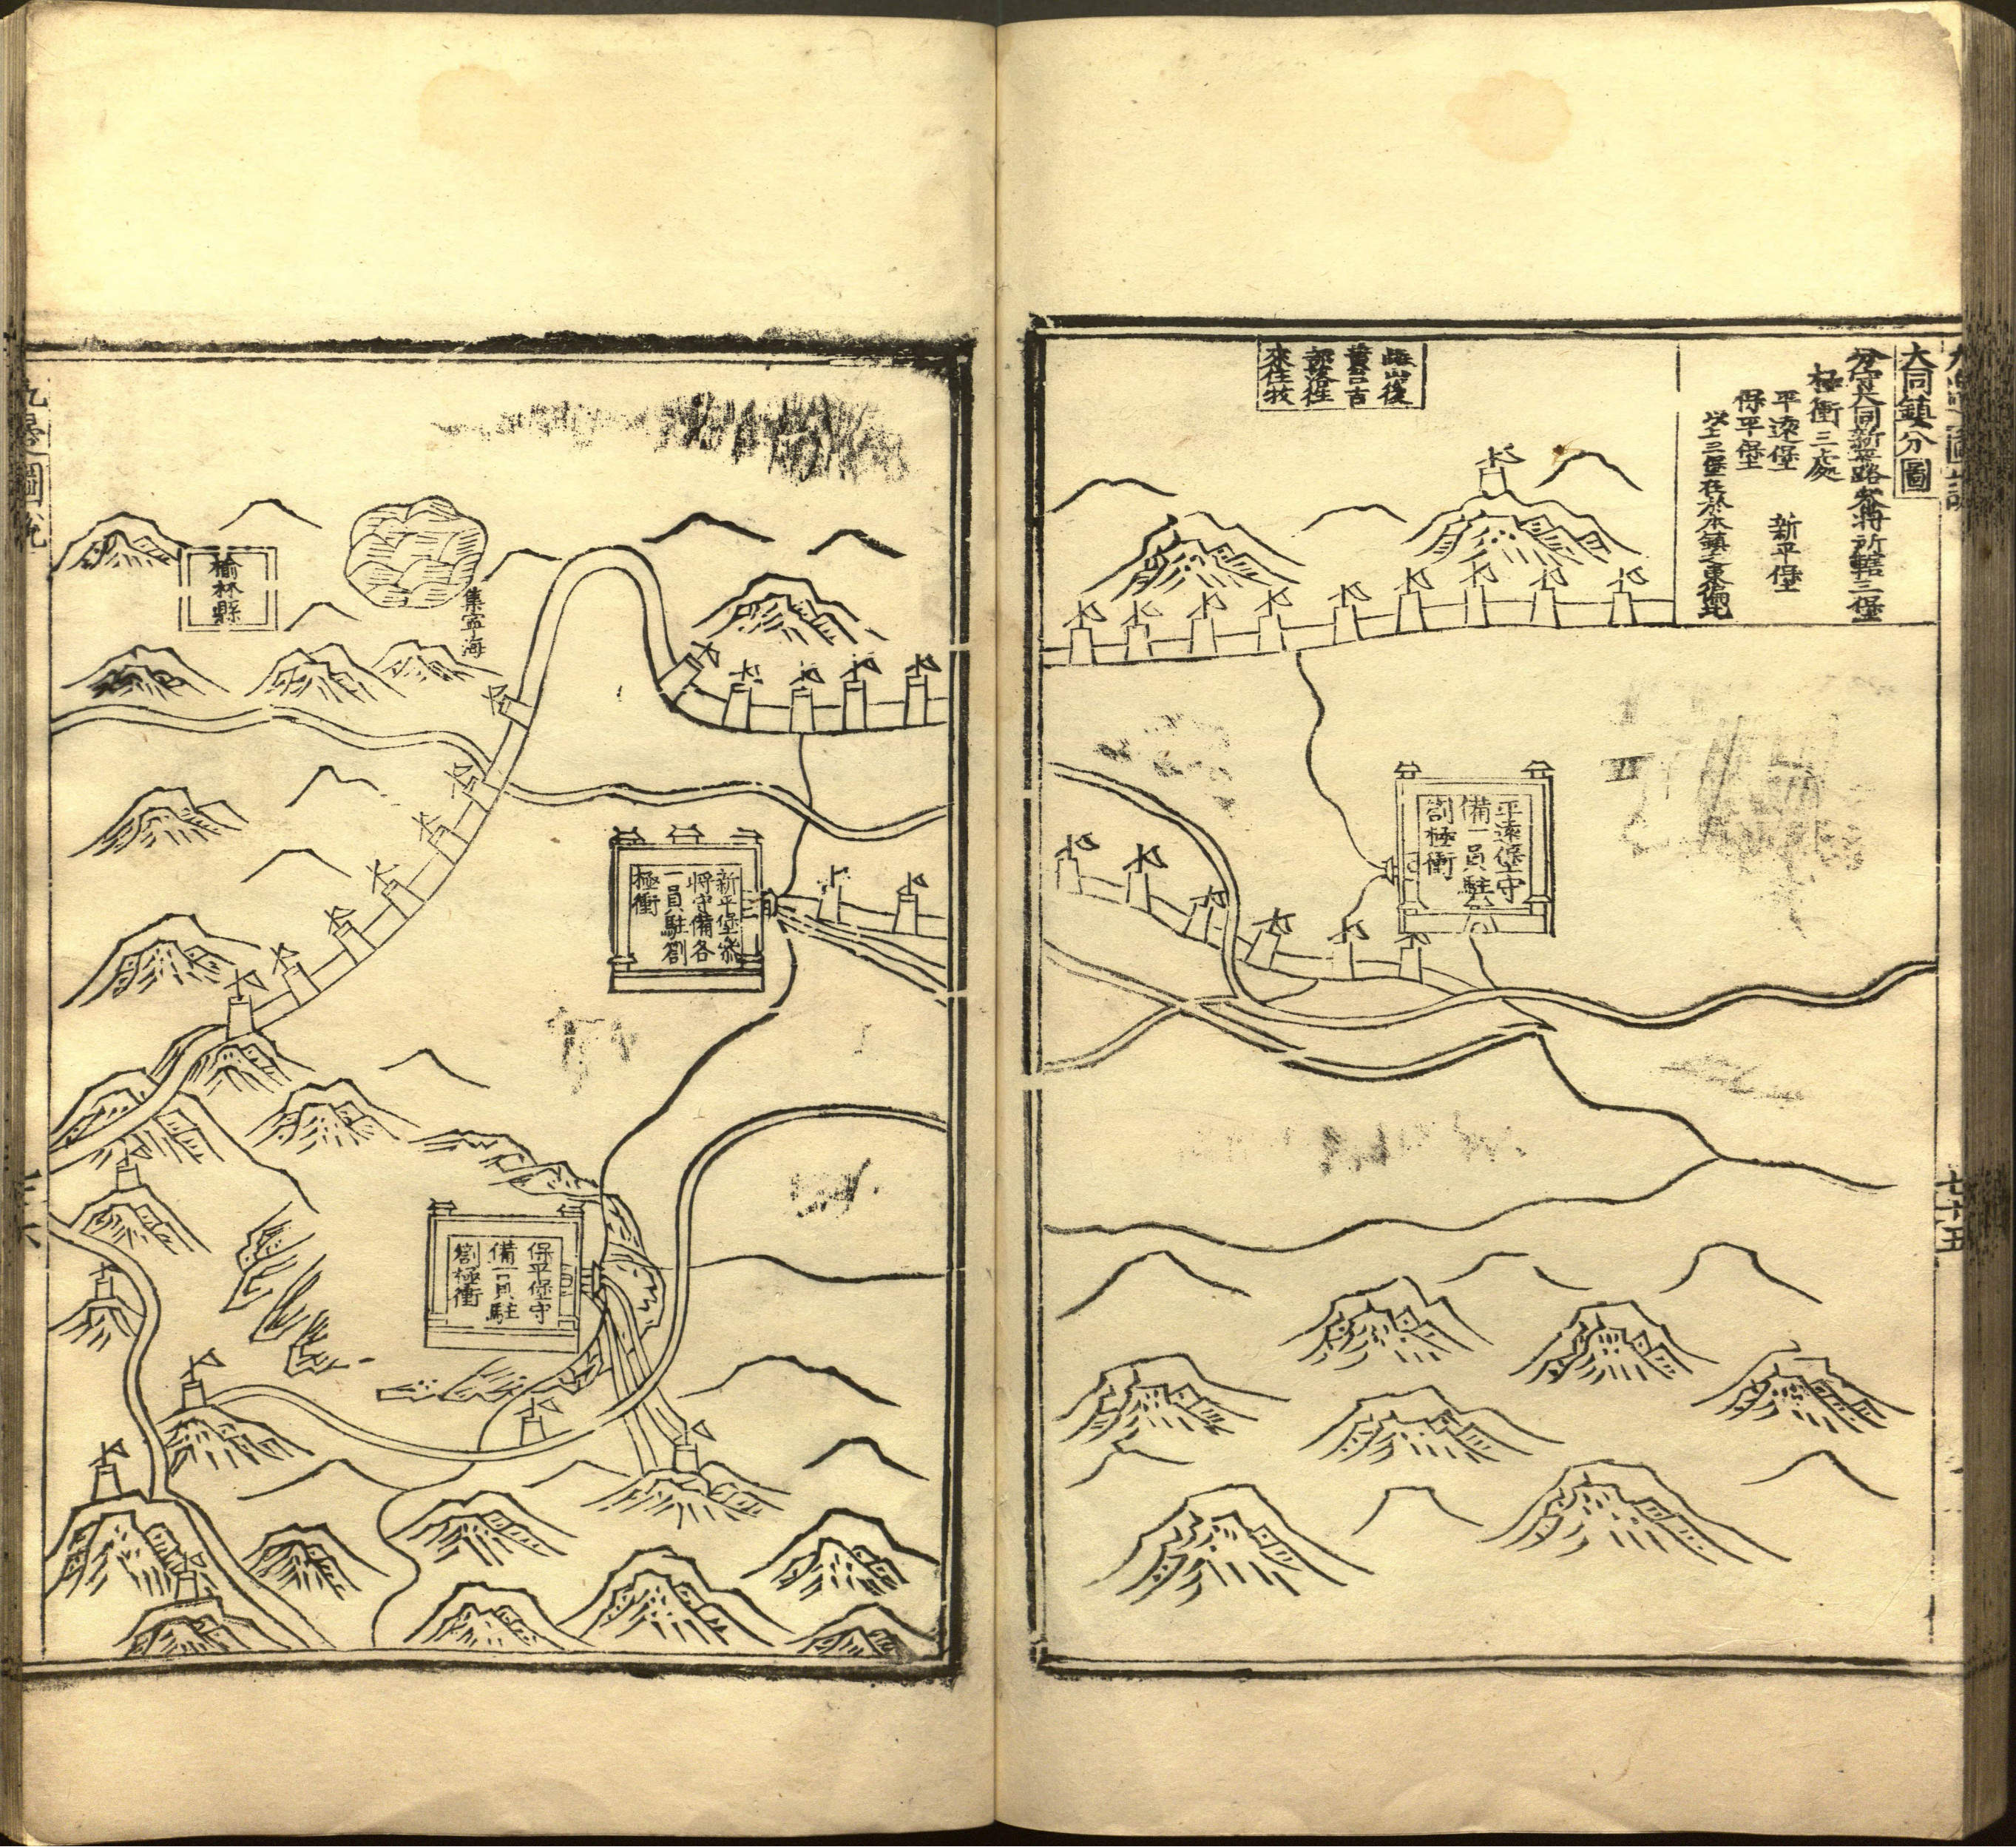 大同鎮分圖
分守大同新平路參將所轄三堡
極衝三處
平遠堡 新平堡
保平堡
以上三堡在於本鎮之東
此山後
黃台吉
部落住
來住牧
平遠堡守
備一員駐
劄極衝
七十五
新平堡參
將守備各
一員駐劄
極衝
保平堡守
備一員駐
劄極衝
集寧海
榆林縣
九邊圖說